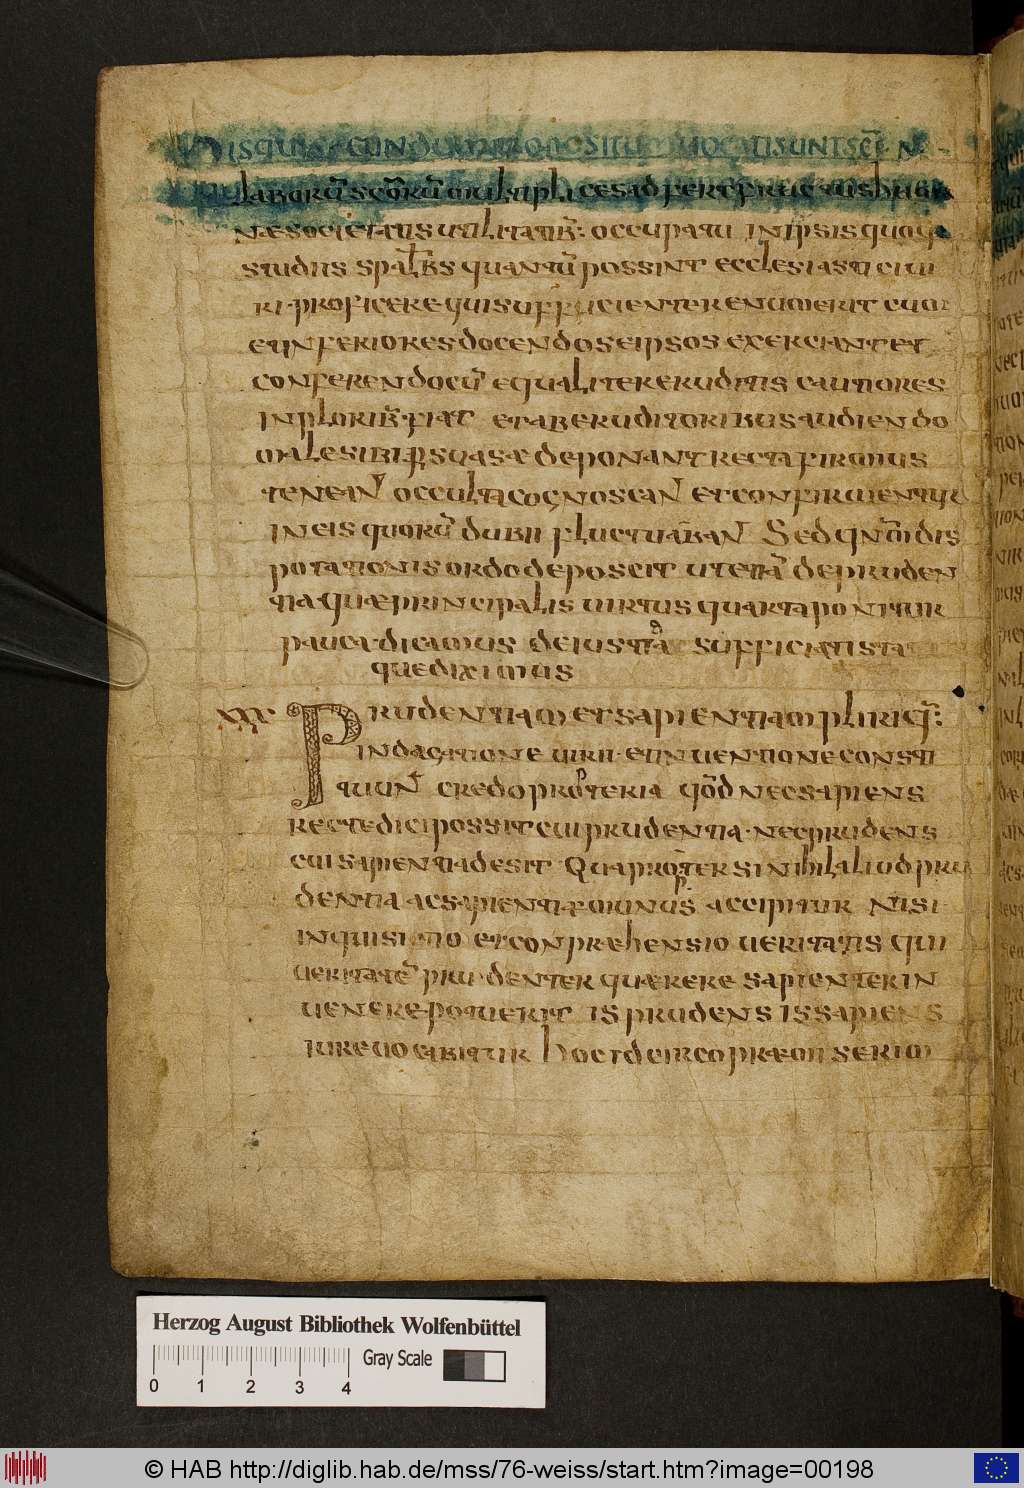 his qui secundum propositum uocati sunt sci N
laborũ scõrũ multiplices adfert fructus hu
næ societatis utilitatib: occupatu in ipsis quoq
studiis spalibs quantũ possint ecclesiastici ui
ri proficere qui sufficienter enumerit cum
et inferiores docendo seipsos exerciant et
conferendo cũ equaliter eruditis cautiores
in plorib: fiat et ab eruditoribus audiendo
male sibi suasa deponant recta firmius
teneañ occulta cognoscañ et confirmentur
in eis quorũ dubii fluctuabañ Sed qñm dis
potationis ordo deposcit ut etiã de pruden
tia quæ principalis uirtus quarta ponitur
pauca dicamus de iustitia sufficiat ista
que diximus
XXX Prudentiam et sapientiam pliriq:
in dagatione uirii et inuentione consti
tuuñ credo propterea qõd nec sapiens
recte dici possit cui prudentia nec prudens
cui sapientia desit Quapropter si nihil aliud pru
dentia ac sapientiæ munus accipitur Nisi
inquisitio et conpræhensio ueritatis qui
ueritatẽ prudenter quærere sapienter in
uenere potuerit is prudens is sapiens
iure uocabitur Hoc id circo præmiserim
Herzog August Bibliothek Wolfenbüttel
Gray Scale
0 1 2 3 4
© HAB http://diglib.hab.de/mss/76-weiss/start.htm?image=00198